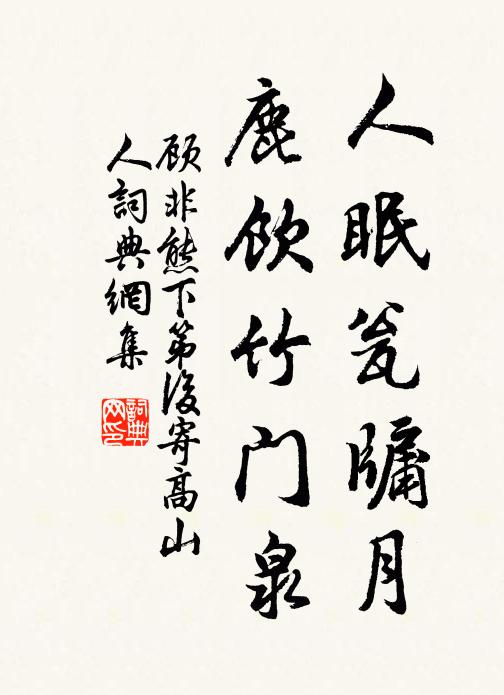 人眠瓮牖月
鹿饮竹门泉
顾非熊下第後寄高山
人詞典網集
詞典网印